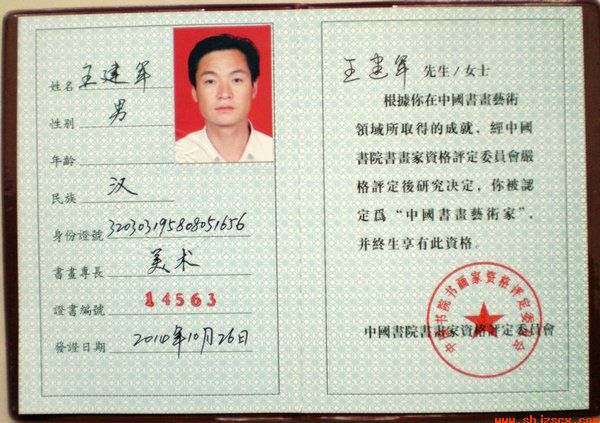 姓名 王建军
性别 男
年齡
民族 汉
身份證號 320303195808051656
書畫專長 美术
證書編號 14563
發證日期 年10月26日
王建军 先生/女士
根據你在中國書畫藝術
領域所取得的成就，經中國
書院書畫家資格評定委員會嚴
格評定後研究決定，你被認
定爲“中國書畫藝術家”，
并終生享有此資格。
中國書院書畫家資格評定委員會
中国书院书画家资格评定委员会
www.shjzscx.com